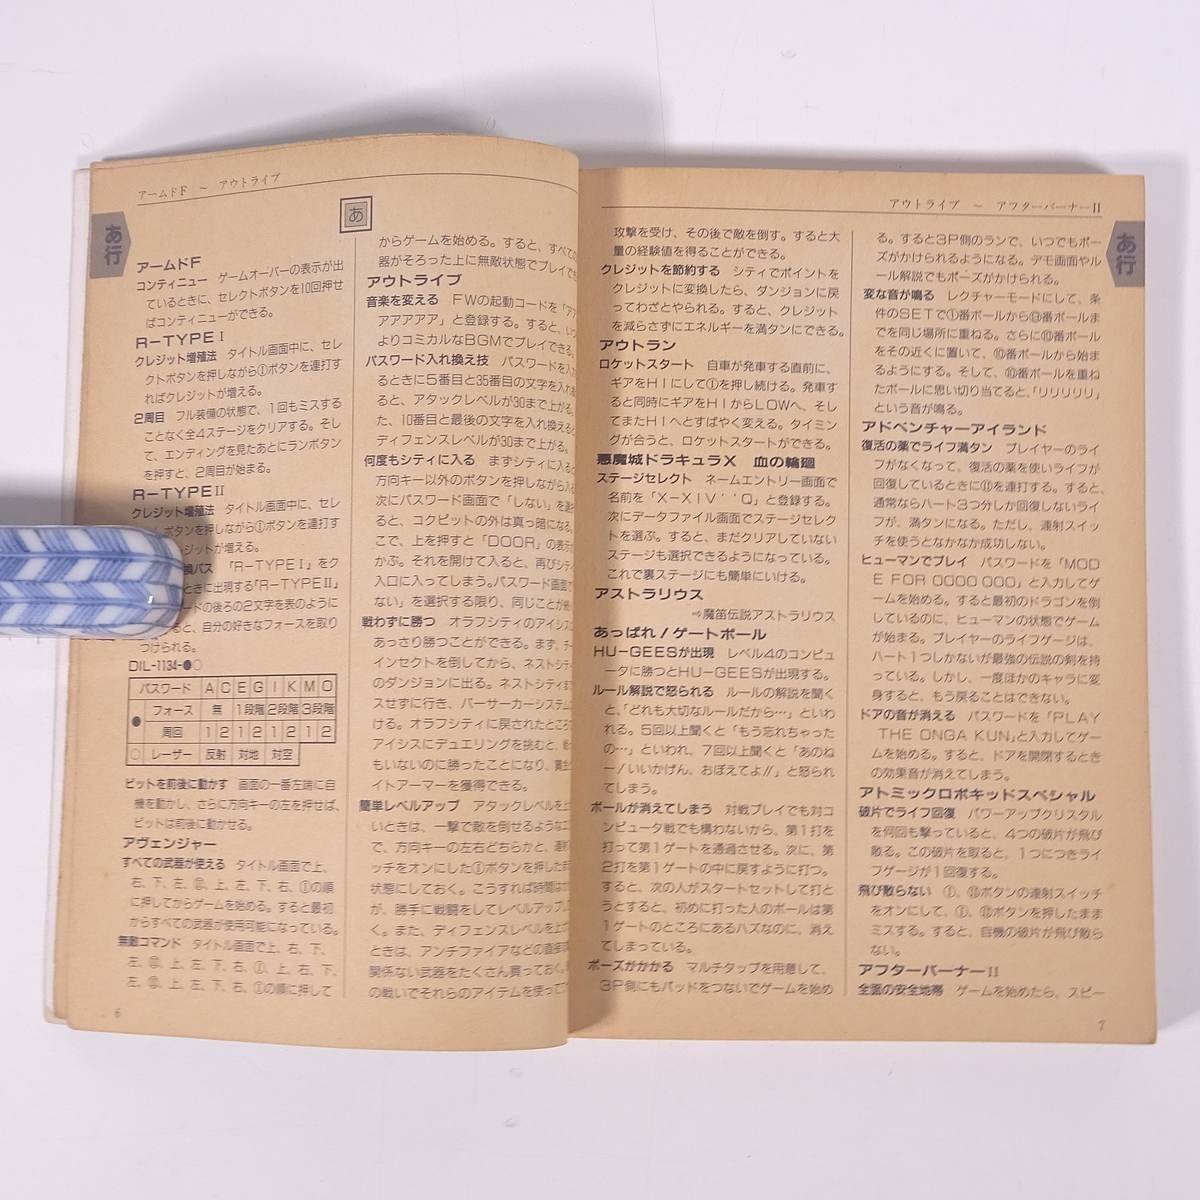 アームドF ～ アウトライブ
あ行
あ
アームドF
コンティニュー ゲームオーバーの表示が出
ているときに、セレクトボタンを10回押せ
ばコンティニューができる。
R-TYPE I
クレジット増殖法 タイトル画面中に、セレ
クトボタンを押しながら①ボタンを連打す
ればクレジットが増える。
2周目 フル装備の状態で、1回もミスする
ことなく全4ステージをクリアする。そし
て、エンディングを見たあとにランボタン
を押すと、2周目が始まる。
R-TYPE II
クレジット増殖法 タイトル画面中に、セレ
ボタンを押しながら①ボタンを連打す
レジットが増える。
換パス 「R-TYPE I」をク
ときに出現する「R-TYPE II」
ードの後ろの2文字を表のように
ると、自分の好きなフォースを取り
つけられる。
DIL-1134-●○
パスワード A C E G I K M O
● フォース 無 1段階 2段階 3段階
周回 1 2 1 2 1 2 1 2
○ レーザー 反射 対地 対空
ビットを前後に動かす 画面の一番左端に自
機を動かし、さらに方向キーの左を押せば、
ビットは前後に動かせる。
アヴェンジャー
すべての武器が使える タイトル画面で上、
右、下、左、Ⅱ、上、左、下、右、①の順
に押してからゲームを始める。すると最初
からすべての武器が使用可能になっている。
無敵コマンド タイトル画面で上、右、下、
左、Ⅱ、上、左、下、右、①、上、右、下、
左、Ⅱ、上、左、下、右、①の順に押して
6
からゲームを始める。すると、すべての
器がそろった上に無敵状態でプレイでき
アウトライブ
音楽を変える FWの起動コードを「ア
アアアアア」と登録する。すると、いつ
よりコミカルなBGMでプレイできる。
パスワード入れ換え技 パスワードを入
るときに5番目と35番目の文字を入れ
ると、アタックレベルが30まで上がる。
た、10番目と最後の文字を入れ換えると
ディフェンスレベルが30まで上がる。
何度もシティに入る まずシティに入ると
方向キー以外のボタンを押しながら
次にパスワード画面で「しない」を選
ると、コクピットの外は真っ暗になる。
こで、上を押すと「DOOR」の表示が
かぶ。それを開けて入ると、再びシティ
入口に入ってしまう。パスワード画面で
ない」を選択する限り、同じことが
戦わずに勝つ オラフシティのアイシスに
あっさり勝つことができる。まず、
インセクトを倒してから、ネストシティ
のダンジョンに出る。ネストシティま
スせずに行き、バーサーカーシステム
ける。オラフシティに戻されたところで
アイシスにデュエリングを挑むと、戦
もいないのに勝ったことになり、黄金
イトアーマーを獲得できる。
簡単レベルアップ アタックレベルを上
いときは、一撃で敵を倒せるようなエ
で、方向キーの左右どちらかと、連射
ッチをオンにした①ボタンを押した
状態にしておく。こうすれば時間は
が、勝手に戦闘をしてレベルアップし
く。また、ディフェンスレベルを上
ときは、アンチファイアなどの直接
関係ない武器をたくさん買っておく。
の戦いでそれらのアイテムを使って
アウトライブ ～ アフターバーナーII
あ行
攻撃を受け、その後で敵を倒す。すると大
量の経験値を得ることができる。
クレジットを節約する シティでポイントを
クレジットに変換したら、ダンジョンに戻
ってわざとやられる。すると、クレジット
を減らさずにエネルギーを満タンにできる。
アウトラン
ロケットスタート 自車が発車する直前に、
ギアをHIにして①を押し続ける。発車す
ると同時にギアをHIからLOWへ、そし
てまたHIへとすばやく変える。タイミン
グが合うと、ロケットスタートができる。
悪魔城ドラキュラX 血の輪廻
ステージセレクト ネームエントリー画面で
名前を「X-XIV''Q」と登録する。
次にデータファイル画面でステージセレク
トを選ぶ。すると、まだクリアしていない
ステージも選択できるようになっている。
これで裏ステージにも簡単にいける。
アストラリウス
⇨魔笛伝説アストラリウス
あっぱれ!ゲートボール
HU-GEESが出現 レベル4のコンピュ
ータに勝つとHU-GEESが出現する。
ルール解説で怒られる ルールの解説を聞く
と、「どれも大切なルールだから…」といわ
れる。5回以上聞くと「もう忘れちゃった
の…」といわれ、7回以上聞くと「あのね
ー/いいかげん、おぼえてよ!!」と怒られ
てしまう。
ボールが消えてしまう 対戦プレイでも対コ
ンピュータ戦でも構わないから、第1打を
打って第1ゲートを通過させる。次に、第
2打を第1ゲートの中に戻すように打つ。
すると、次の人がスタートセットして打と
うとすると、初めに打った人のボールは第
1ゲートのところにあるハズなのに、消え
てしまっている。
ポーズがかかる マルチタップを用意して、
3P側にもパッドをつないでゲームを始め
る。すると3P側のランで、いつでもポー
ズがかけられるようになる。デモ画面やル
ール解説でもポーズがかけられる。
変な音が鳴る レクチャーモードにして、条
件のSETで①番ボールから⑨番ボールま
でを同じ場所に重ねる。さらに⑩番ボール
をその近くに置いて、⑩番ボールから始ま
るようにする。そして、⑩番ボールを重ね
たボールに思い切り当てると、「リリリリリ」
という音が鳴る。
アドベンチャーアイランド
復活の薬でライフ満タン プレイヤーのライ
フがなくなって、復活の薬を使いライフが
回復しているときにⅡを連打する。すると、
通常ならハート3つ分しか回復しないライ
フが、満タンになる。ただし、連射スイッ
チを使うとなかなか成功しない。
ヒューマンでプレイ パスワードを「MOD
E FOR 0000 000」と入力してゲ
ームを始める。すると最初のドラゴンを倒
しているのに、ヒューマンの状態でゲーム
が始まる。プレイヤーのライフゲージは、
ハート1つしかないが最強の伝説の剣を持
っている。しかし、一度ほかのキャラに変
身すると、もう戻ることはできない。
ドアの音が消える パスワードを「PLAY
THE ONGA KUN」と入力してゲー
ムを始める。すると、ドアを開閉するとき
の効果音が消えてしまう。
アトミックロボキッドスペシャル
破片でライフ回復 パワーアップクリスタル
を何回も撃っていると、4つの破片が飛び
散る。この破片を取ると、1つにつきライ
フゲージが1回復する。
飛び散らない ①、Ⅱボタンの連射スイッチ
をオンにして、①、Ⅱボタンを押したまま
ミスする。すると、自機の破片が飛び散ら
ない。
アフターバーナーII
全面の安全地帯 ゲームを始めたら、スピー
7